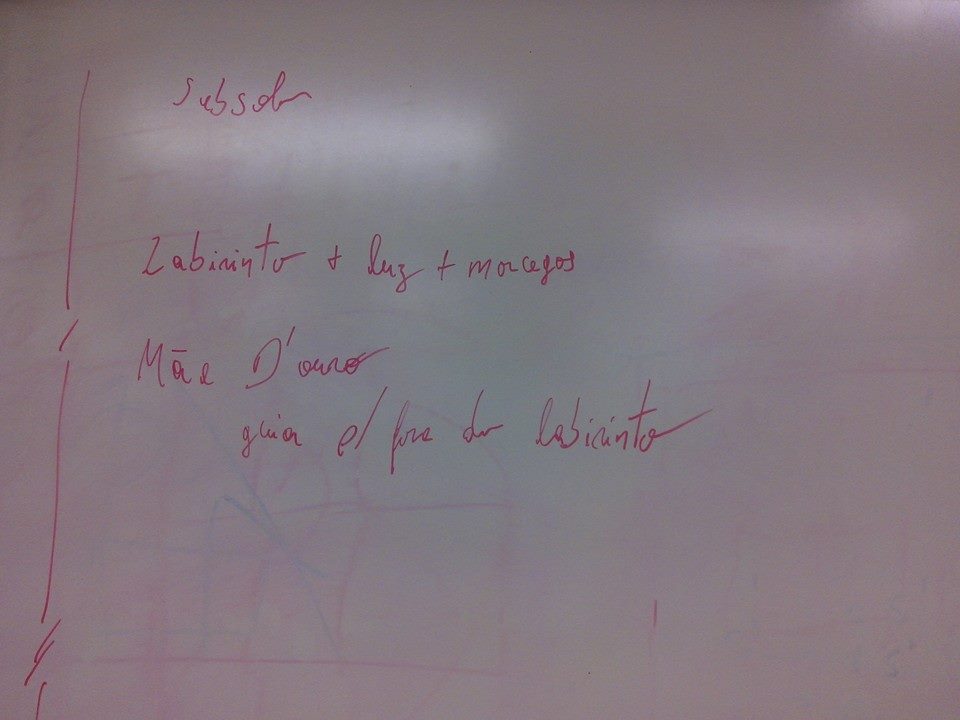 Subsolo
Labirinto + luz + morcegos
Mãe D'ouro
guia p/ fora do labirinto